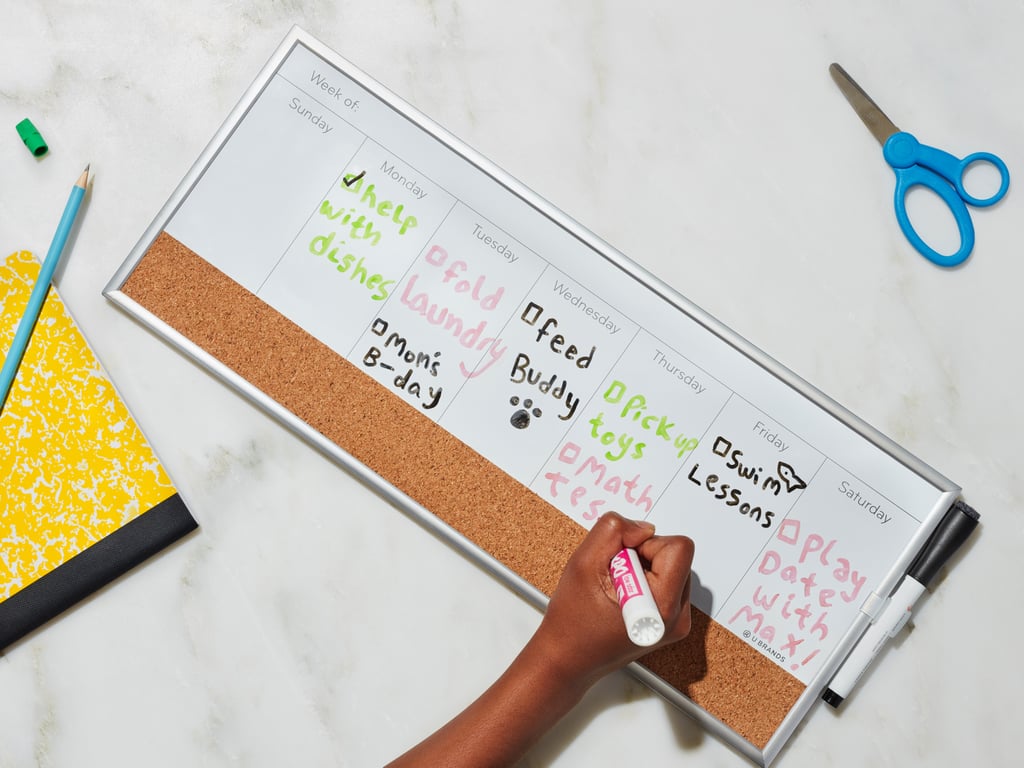 Week of:
Sunday
Monday
help
with
dishes
Mom's
B-day
Tuesday
fold
laundry
Wednesday
feed
Buddy
Thursday
Pick up
toys
Math
tes
Friday
Swim
Lessons
Saturday
Play
Date
with
Max!
U BRANDS